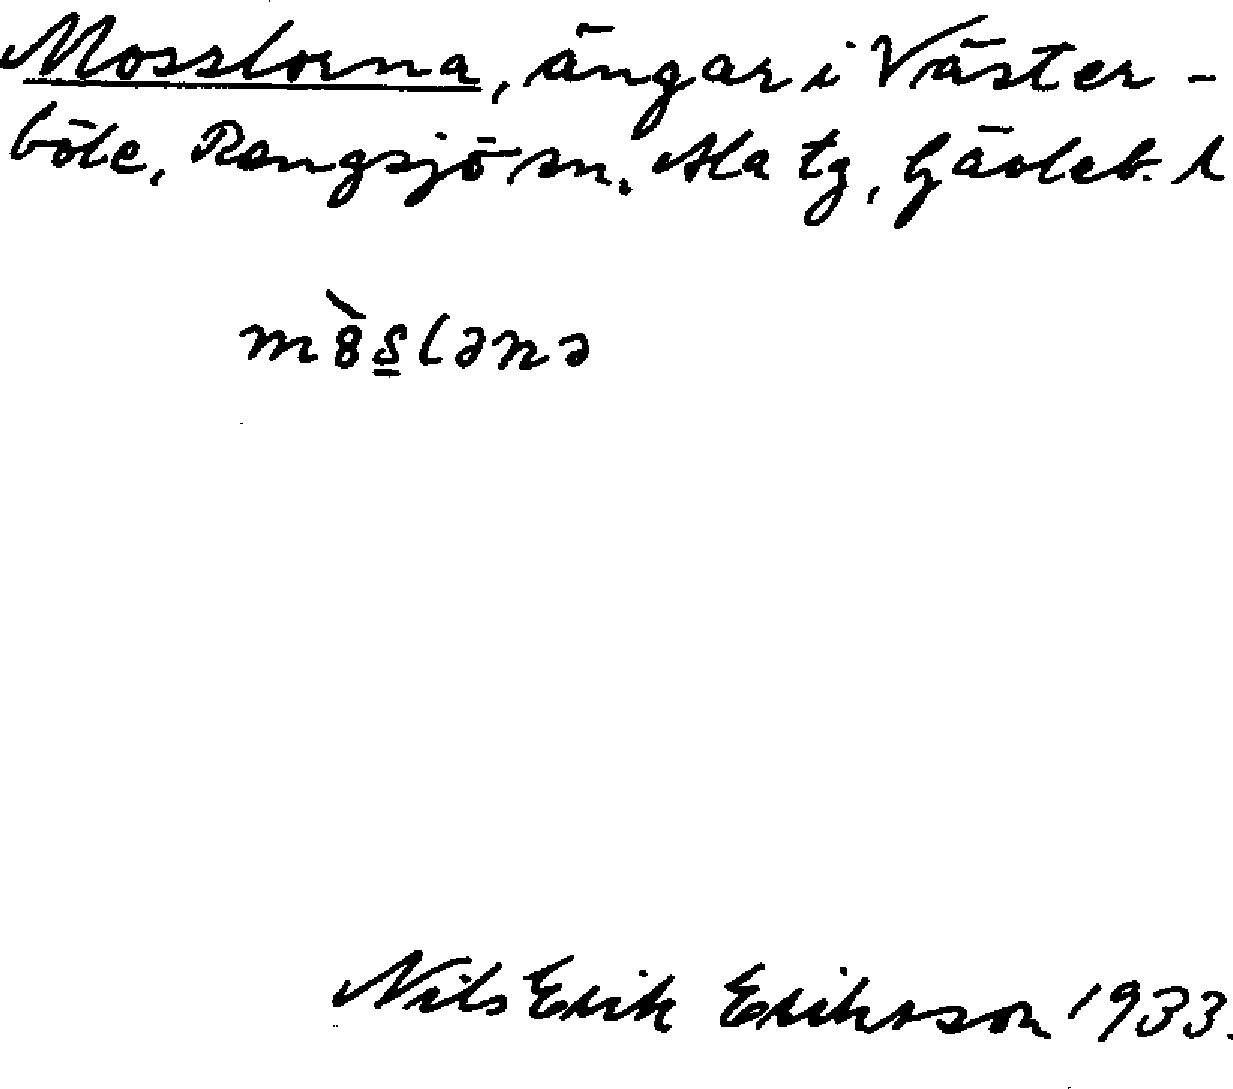 Mosslorna, ängar i Väster-
böle, Rengsjö sn, Ala tg, Gävleb. l
mös̲lənə
Nils Erik Eriksson 1933.